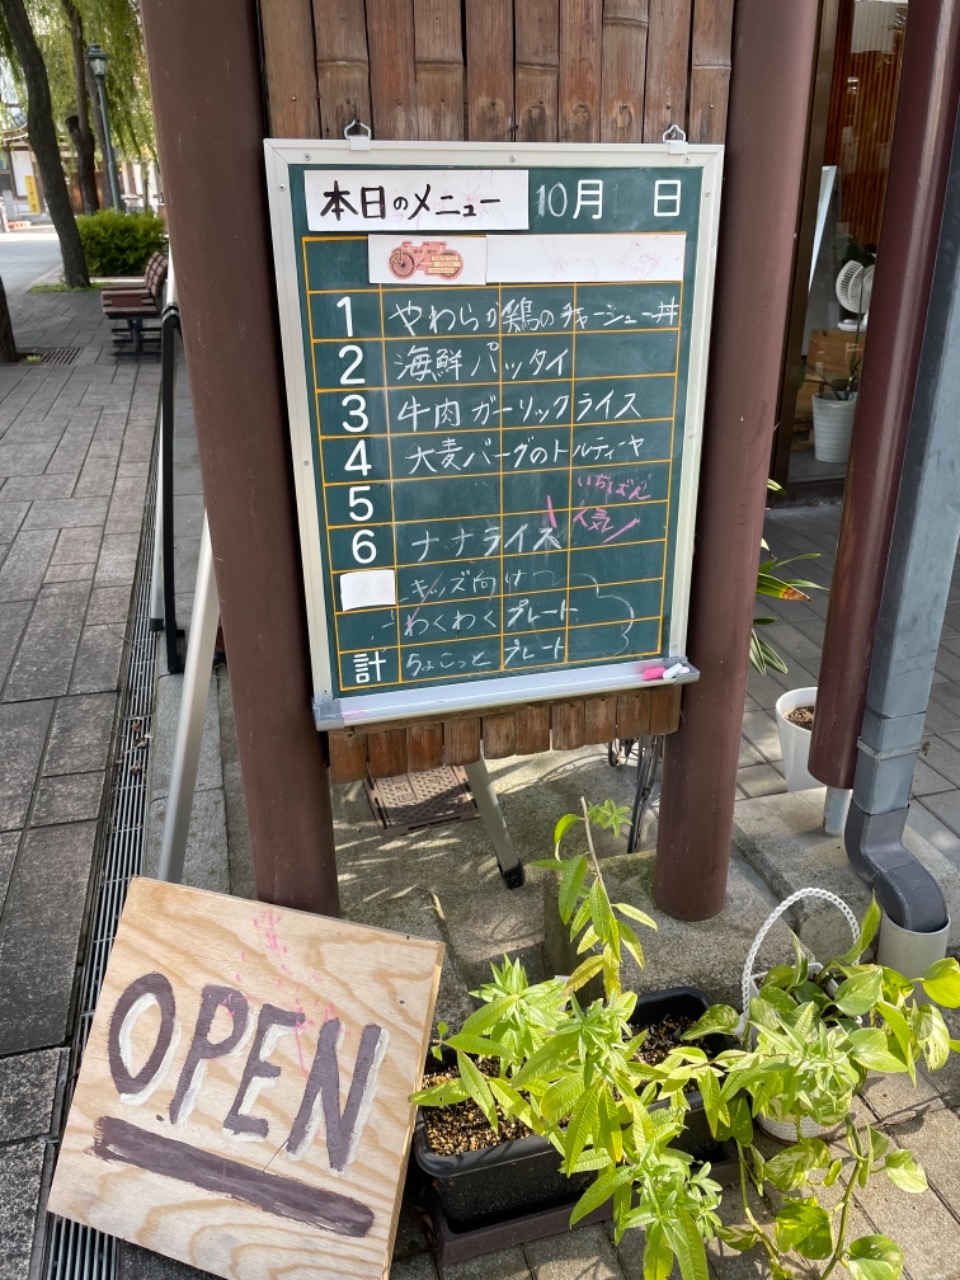 本日のメニュー 10月 日
1 やわらか鶏のチャーシュー丼
2 海鮮パッタイ
3 牛肉ガーリックライス
4 大麦バーグのトルティーヤ
5
いちばん
人気
6 ナナライス
キッズ向け
わくわくプレート
計 ちょこっとプレート
OPEN